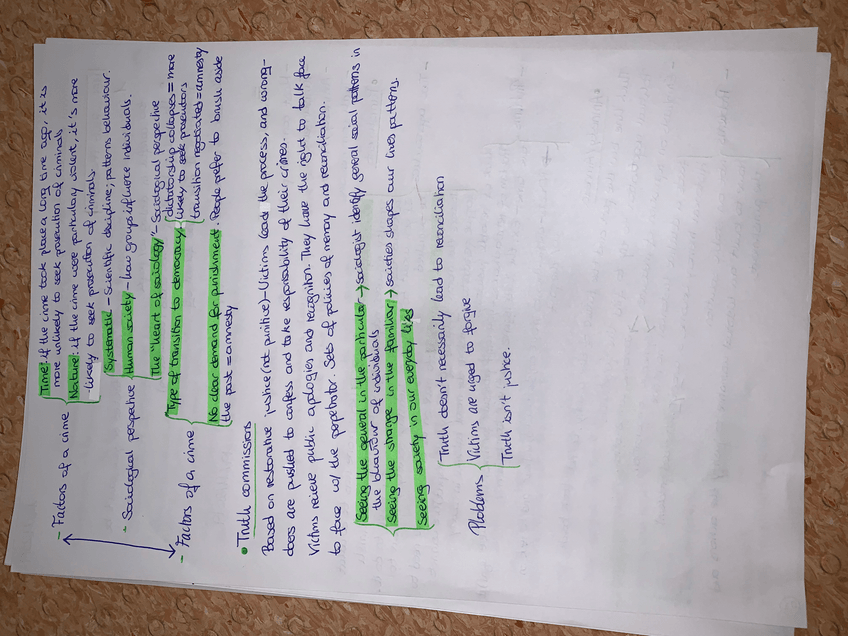 - Factors of a crime
Time: if the crime took place a long time ago, it is
more unlikely to seek prosecution of criminals
Nature: if the crime were particulary violent, it's more
likely to seek prosecution of criminals.
- Sociological perspective
Systematic - Scientific discipline; patterns behaviour.
Human society - how groups influence individuals.
The "heart of sociology" - Sociological perspective
- Factors of a crime
Type of transition to democracy: dictatorship collapses = more
likely to seek prosecutions
transition negotiated = amnesty
No clear demand for punishment. People prefer to brush aside
the past = amnesty
• Truth commissions
Based on restorative justice (not punitive) - Victims lead the process, and wrong-
doers are pushed to confess and take responsability of their crimes.
Victims recieve public apologies and recognition. They have the right to talk face
to face w/ the perpetrator. Sets of policies of memory and reconciliation.
Seeing the general in the particular → sociologist identify general social patterns in
the behaviour of individuals
Seeing the strange in the familiar → societies shapes our lives patterns.
Seeing society in our everyday lives
Problems
Truth doesn't necessarily lead to reconciliation
Victims are urged to forgive
Truth isn't justice.